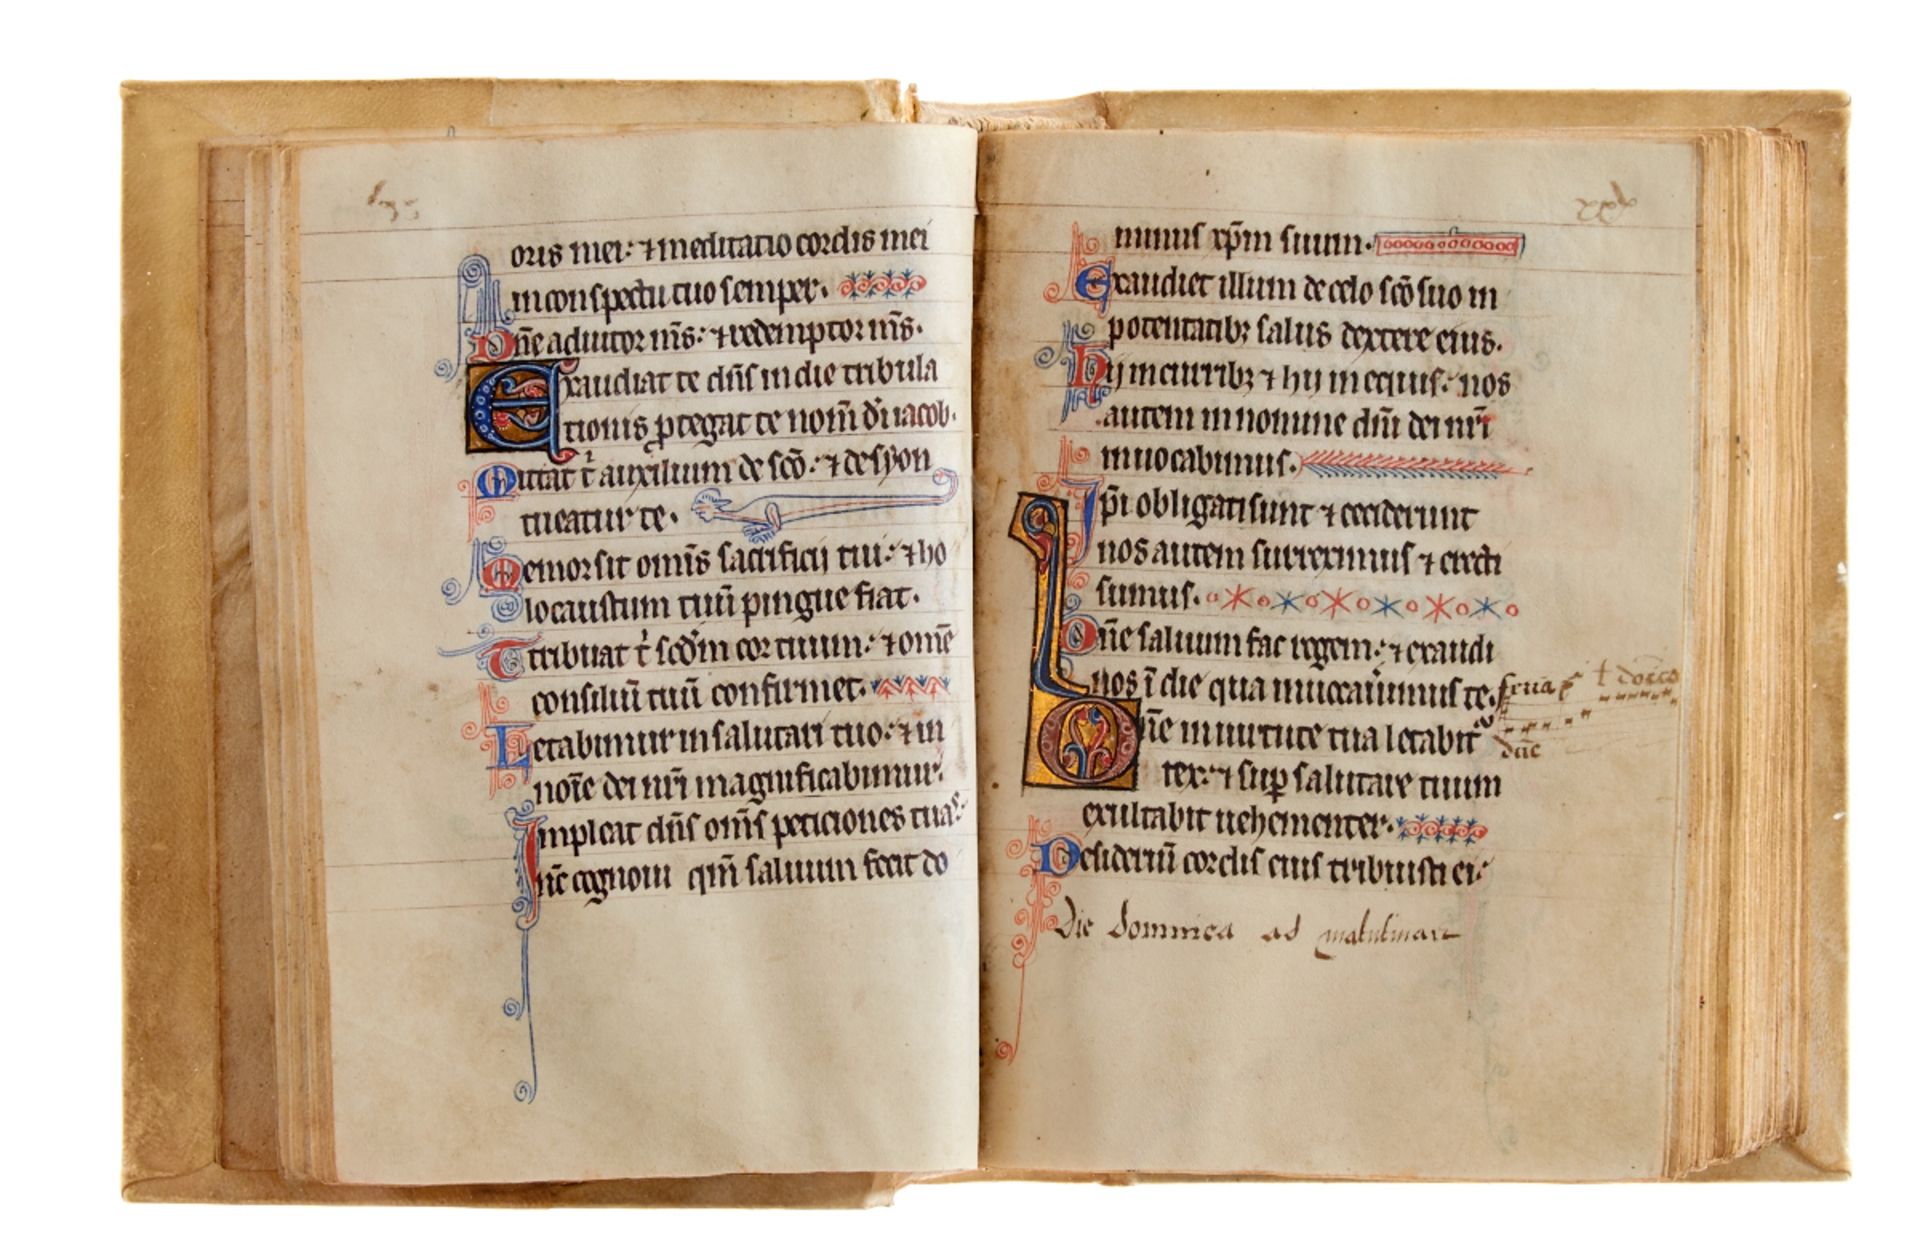 oris mei: ⁊ meditatio cordis mei
In conspectu tuo semper.
Dn̄e adiutor ms̄: ⁊ redemptor ms̄.
Exaudiat te dn̄s in die tribula
tionis ꝓtegat te nom̄ dī iacob.
Mittat t̄ auxilium de sc̄o: ⁊ de syon
tueatur te.
Memor sit omīs sacrificij tui: ⁊ ho
locaustum tuū pingue fiat.
Tribuat t̄ scd̄m cor tuum: ⁊ om̄e
consiliū tuū confirmet.
Letabimur in salutari tuo: ⁊ in
noīe dei nr̄i magnificabimur.
Impleat dn̄s om̄s peticiones tuas
nc̄ cognoui qm̄ saluum fecit do
minus xp̄m suum.
Exaudiet illum de celo sc̄o suo in
potentatibꝫ salus dextere eius.
Hij in curribꝫ ⁊ hij in equis: nos
autem in nomine dn̄i dei nr̄i
inuocabimus.
Ip̄i obligati sunt ⁊ ceciderunt
nos autem surreximus ⁊ erecti
sumus.
Dn̄e saluum fac regem: ⁊ exaudi
nos ī die qua inuocauimus te.
Dn̄e in uirtute tua letabit᷑
rex: ⁊ suꝑ salutare tuum
exultabit uehementer.
Desideriū cordis eius tribuisti ei:
Die dominica ad